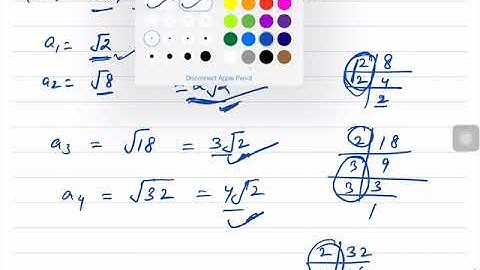 a₁ = √2
a₂ = √8 = 2√2
Disconnect Apple Pencil
2 8
2 4
2
a₃ = √18 = 3√2
2 18
3 9
3 3
1
a₄ = √32 = 4√2
2 32